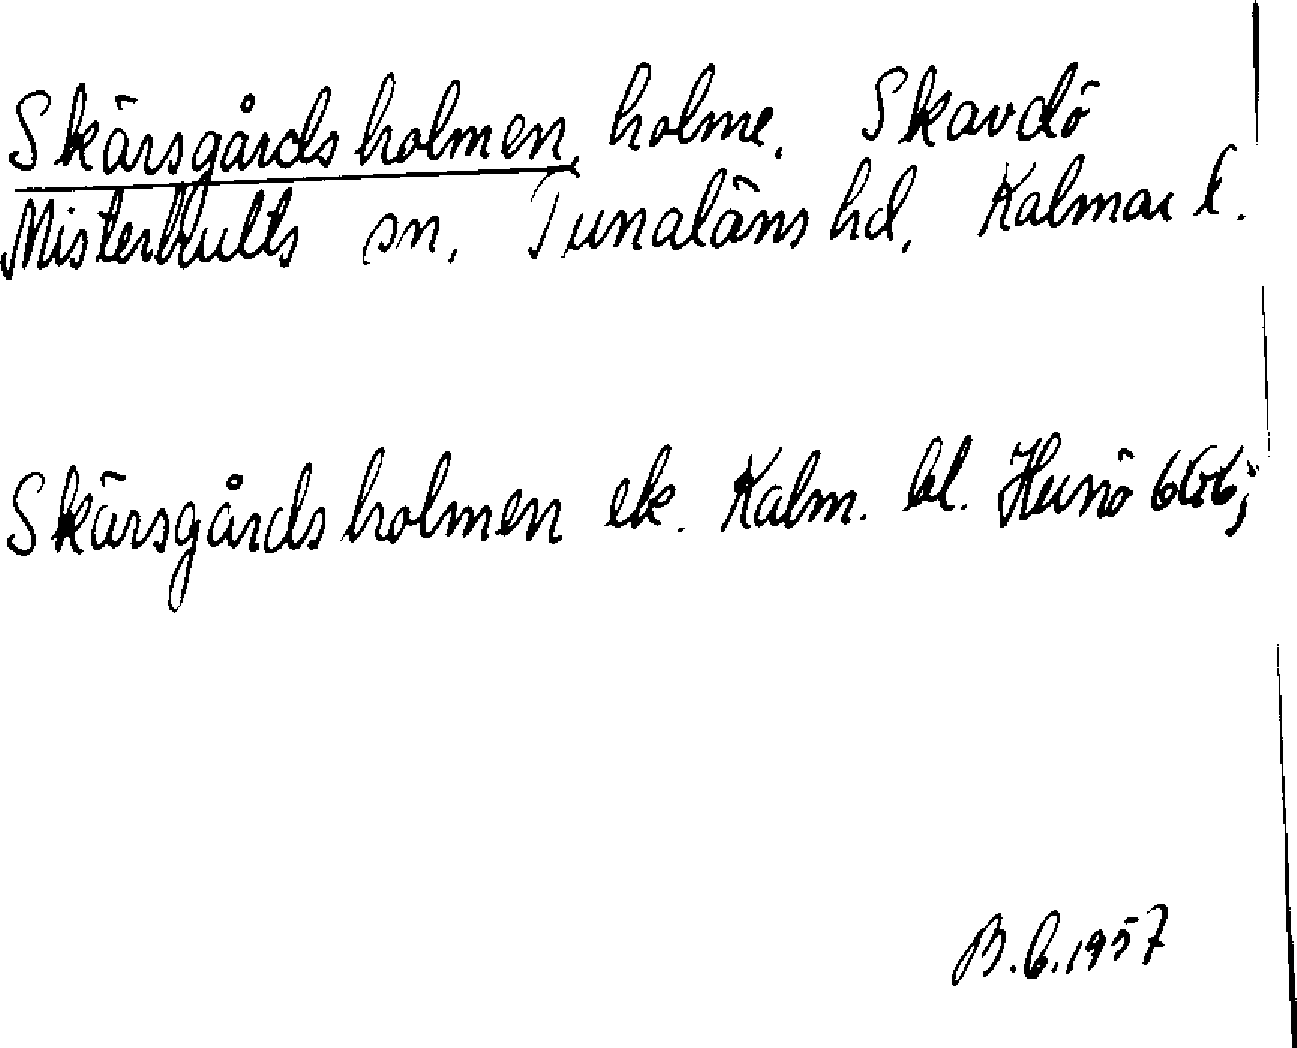 Skärsgårdsholmen, holme. Skavdö
Misterhults sn, Tunaläns hd, Kalmar l.
Skärsgårdsholmen ek. Kalm. bl. Hunö 666;
B.G. 1957